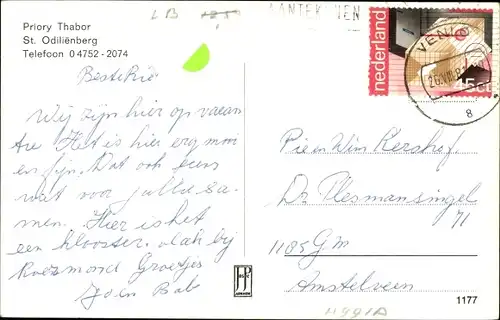 Priory Thabor
St. Odiliënberg
Telefoon 0 4752 - 2074
LB
AANTEKENEN
nederland
VENLO
8
Beste Rie
Wij zijn hier op vacan
tie Het is hier erg mooi
en fijn. Dat ook eens
wat voor jullie sa-
men. Hier is het
een klooster. vlak bij
Roermond Groetjes
Jo en Bab
Pie en Wim Kershof
Dr Plesmansingel
71
1185 G.M
Amstelveen
1177